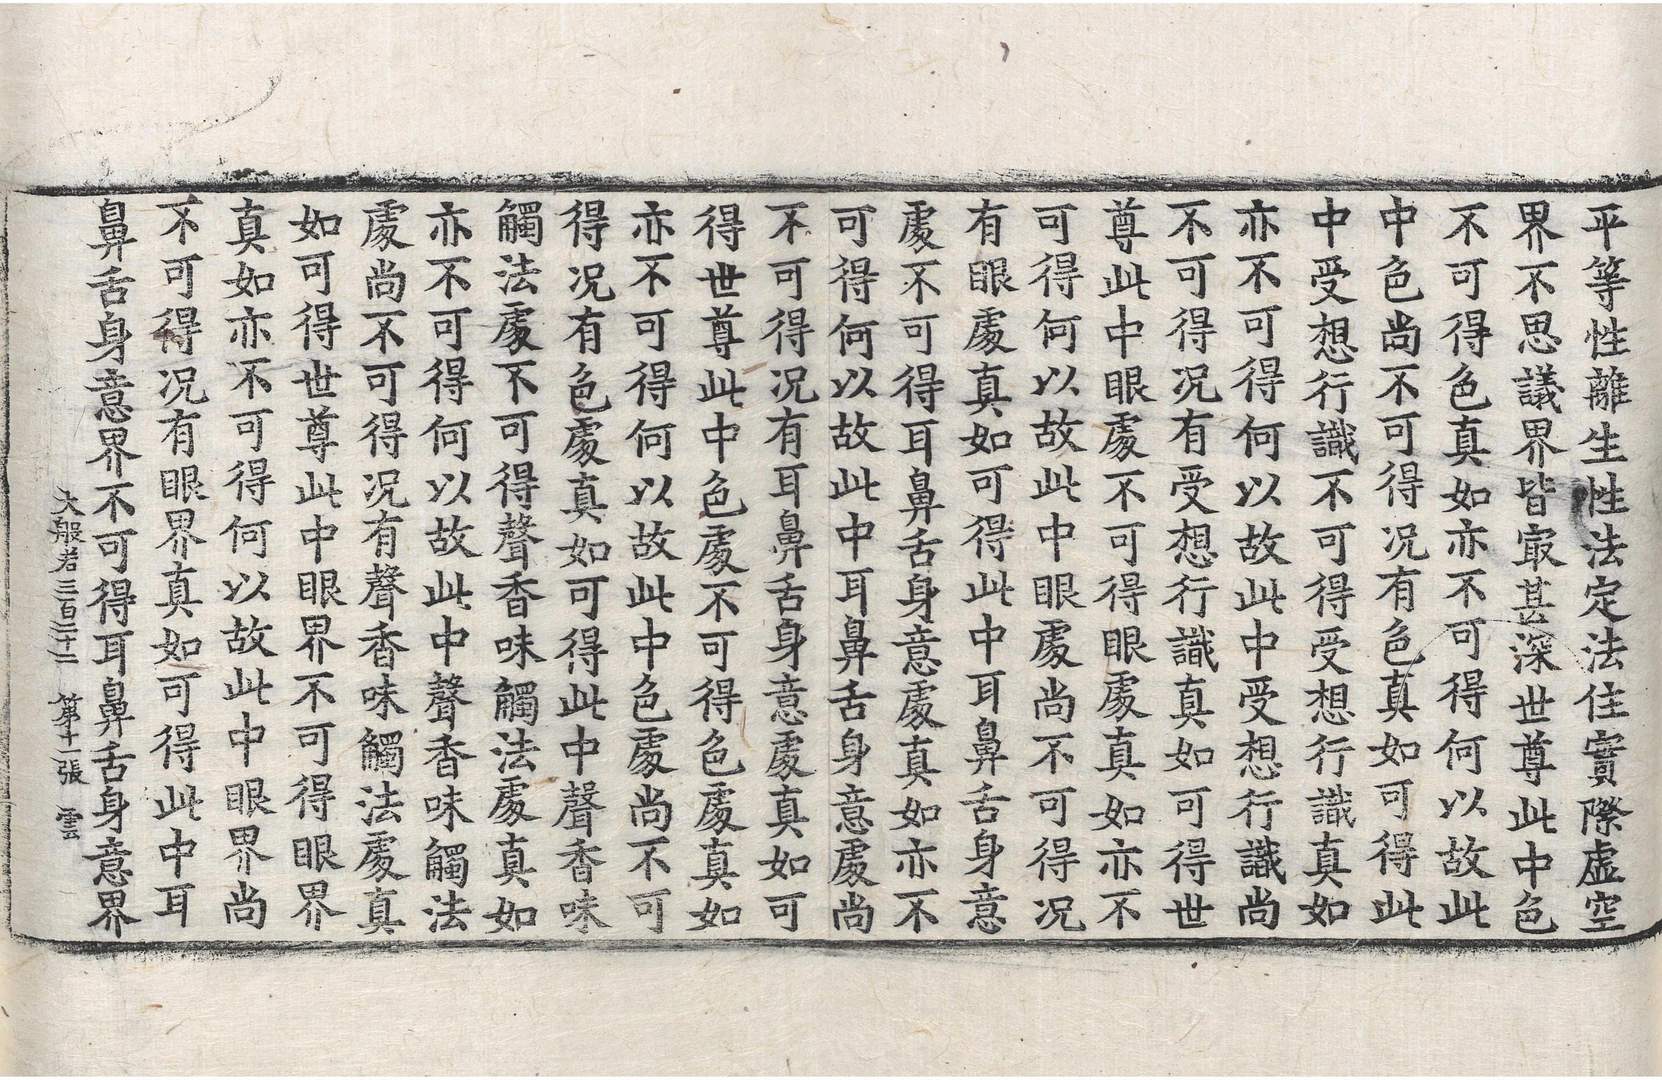 平等性離生性法定法住實際虛空
界不思議界皆㝡甚深世尊此中色
不可得色真如亦不可得何以故此
中色尚不可得况有色真如可得此
中受想行識不可得受想行識真如
亦不可得何以故此中受想行識尚
不可得况有受想行識真如可得世
尊此中眼處不可得眼處真如亦不
可得何以故此中眼處尚不可得况
有眼處真如可得此中耳鼻舌身意
處不可得耳鼻舌身意處真如亦不
可得何以故此中耳鼻舌身意處尚
不可得况有耳鼻舌身意處真如可
得世尊此中色處不可得色處真如
亦不可得何以故此中色處尚不可
得况有色處真如可得此中聲香味
觸法處不可得聲香味觸法處真如
亦不可得何以故此中聲香味觸法
處尚不可得况有聲香味觸法處真
如可得世尊此中眼界不可得眼界
真如亦不可得何以故此中眼界尚
不可得况有眼界真如可得此中耳
鼻舌身意界不可得耳鼻舌身意界
大般若三百二十二 第十一張 雲